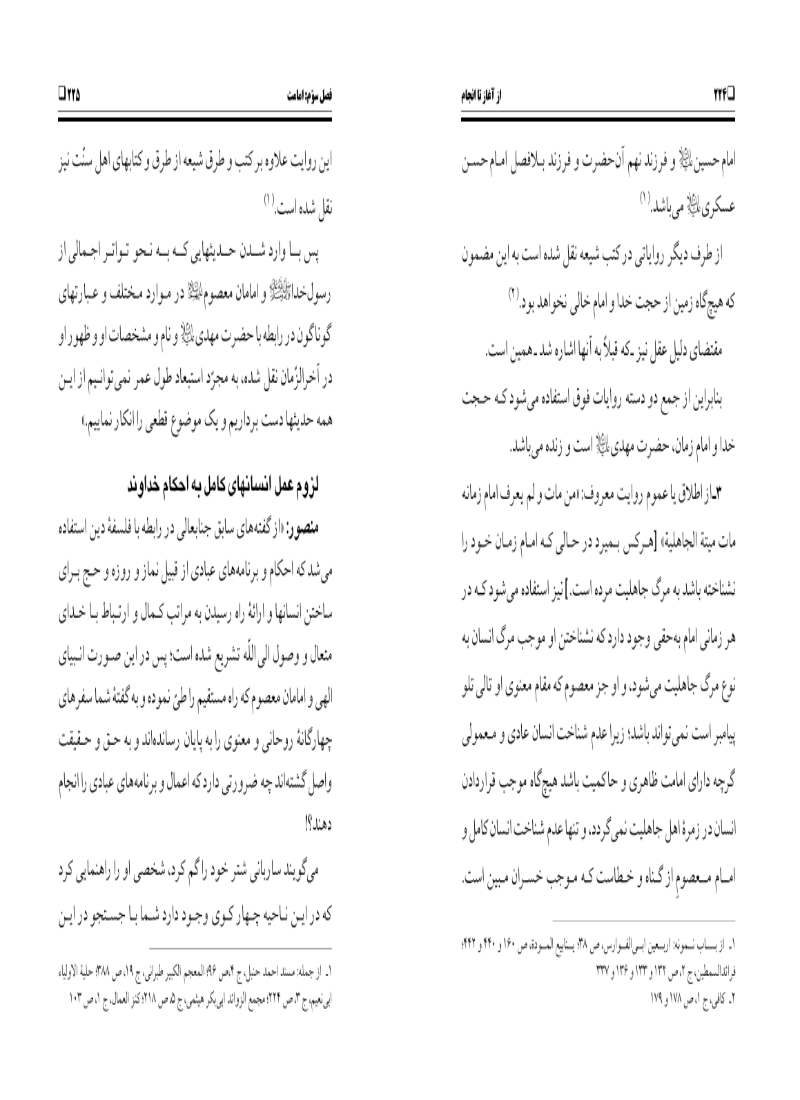 ❏ ۲۲۴ از آغاز تا انجام
امام حسین﷣ و فرزند نهم آن‌حضرت و فرزند بلافصل امام حسن
عسکری﷣ می‌باشد.(۱)
از طرف دیگر روایاتی در کتب شیعه نقل شده است به این مضمون
که هیچ‌گاه زمین از حجت خدا و امام خالی نخواهد بود.(۲)
مقتضای دلیل عقل نیز ـ‌که قبلاً به آنها اشاره شد‌ـ همین است.
بنابراین از جمع دو دسته روایات فوق استفاده می‌شود که حجت
خدا و امام زمان، حضرت مهدی﷣ است و زنده می‌باشد.
۳ـ از اطلاق یا عموم روایت معروف: «من مات و لم یعرف امام زمانه
مات میتة الجاهلیة» [هرکس بمیرد در حالی که امام زمان خود را
نشناخته باشد به مرگ جاهلیت مرده است.] نیز استفاده می‌شود که در
هر زمانی امام به‌حقی وجود دارد که نشناختن او موجب مرگ انسان به
نوع مرگ جاهلیت می‌شود، و او جز معصوم که مقام معنوی او تالی تلو
پیامبر است نمی‌تواند باشد؛ زیرا عدم شناخت انسان عادی و معمولی
گرچه دارای امامت ظاهری و حاکمیت باشد هیچ‌گاه موجب قراردادن
انسان در زمرهٔ اهل جاهلیت نمی‌گردد، و تنها عدم شناخت انسان کامل و
امام معصومِ از گناه و خطاست که موجب خسران مبین است.
۱ـ از باب نمونه: اربعین ابی‌الفوارس، ص ۳۸؛ ینابیع المودة، ص ۱۶۰ و ۴۴۰ و ۴۴۲؛
فرائدالسمطین، ج ۲، ص ۱۳۲ و ۱۳۳ و ۱۳۶ و ۳۳۷
۲ـ کافی، ج ۱، ص ۱۷۸ و ۱۷۹
فصل سوّم: امامت ۲۲۵ ❏
این روایت علاوه بر کتب و طرق شیعه از طرق و کتابهای اهل سنّت نیز
نقل شده است.(۱)
پس با وارد شدن حدیثهایی که به نحو تواتر اجمالی از
رسول‌خدا﷐ و امامان معصوم﷨ در موارد مختلف و عبارتهای
گوناگون در رابطه با حضرت مهدی﷣ و نام و مشخصات او و ظهور او
در آخرالزّمان نقل شده، به مجرّد استبعاد طول عمر نمی‌توانیم از این
همه حدیثها دست برداریم و یک موضوع قطعی را انکار نماییم.»
لزوم عمل انسانهای کامل به احکام خداوند
منصور: «از گفته‌های سابق جنابعالی در رابطه با فلسفهٔ دین استفاده
می‌شد که احکام و برنامه‌های عبادی از قبیل نماز و روزه و حج برای
ساختن انسانها و ارائهٔ راه رسیدن به مراتب کمال و ارتباط با خدای
متعال و وصول الی‌اللّه تشریع شده است؛ پس در این صورت انبیای
الهی و امامان معصوم که راه مستقیم را طیّ نموده و به گفتهٔ شما سفرهای
چهارگانهٔ روحانی و معنوی را به پایان رسانده‌اند و به حق و حقیقت
واصل گشته‌اند چه ضرورتی دارد که اعمال و برنامه‌های عبادی را انجام
دهند؟!
می‌گویند ساربانی شتر خود را گم کرد، شخصی او را راهنمایی کرد
که در این ناحیه چهار کوی وجود دارد شما با جستجو در این
۱ـ از جمله: مسند احمد حنبل، ج ۴، ص ۹۶؛ المعجم الکبیر طبرانی، ج ۱۹، ص ۳۸۸؛ حلیة الاولیاء
ابی‌نعیم، ج ۳، ص ۲۲۴؛ مجمع الزوائد ابی‌بکر هیثمی، ج ۵، ص ۲۱۸؛ کنز العمال، ج ۱، ص ۱۰۳